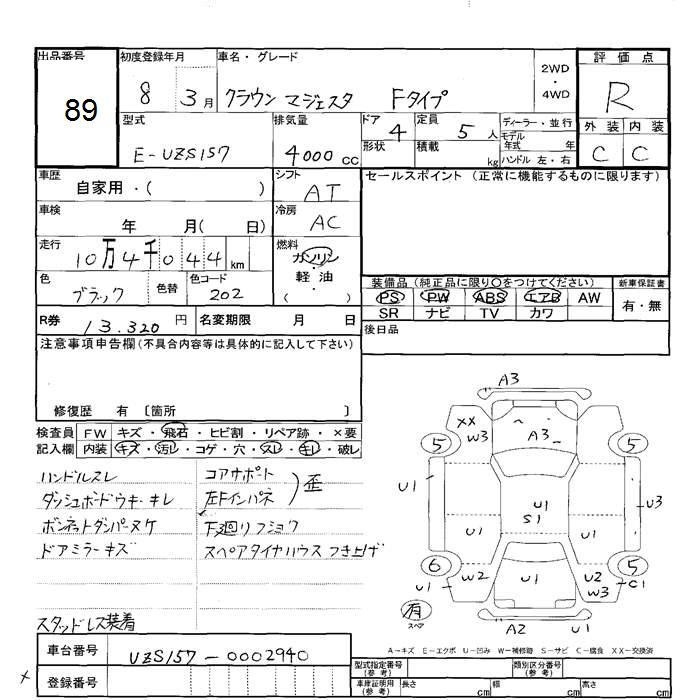 出品番号 初度登録年月 車名・グレード 2WD・4WD 評価点
89 8 3月 クラウン マジェスタ Fタイプ R
型式 排気量 ドア 4 定員 5人 ディーラー・並行 外装 内装
E-UZS157 4000cc 形状 積載 kg モデル年式 年 C C
ハンドル 左・右
車歴 自家用・( ) シフト AT セールスポイント (正常に機能するものに限ります)
車検 年 月( 日) 冷房 AC
走行 10万4千044km 燃料 ガソリン
軽油
( )
色 ブラック 色替 色コード 202
装備品(純正品に限り○をつけてください) 新車保証書
PS PW ABS エアB AW 有・無
SR ナビ TV カワ
R券 13.320円 名変期限 月 日 後日品
注意事項申告欄(不具合内容等は具体的に記入して下さい)
修復歴 有 〔箇所 〕
検査員 FW キズ・飛石・ヒビ割・リペア跡・×要
記入欄 内装 キズ・汚レ・コゲ・穴・スレ・キレ・破レ
ハンドルスレ コアサポート
ダッシュボードウキ・キレ 左Fインパネ ) 歪
ボンネットダンパーヌケ 下廻リフショク
ドアミラーキズ スペアタイヤハウス つき上げ
スタッドレス装着
A3
XX W3 A3
5 5
U1 U1 S1 U3
U1 U1
6 5
U1 W2 U1 U2 W3 C1
有 スペア A2 U1
A-キズ E-エクボ U-凹み W-補修跡 S-サビ C-腐食 XX-交換済
車台番号 UZS157-0002940
型式指定番号(参考) 類別区分番号(参考)
登録番号
車庫証明用(参考) 長さ cm 幅 cm 高さ cm